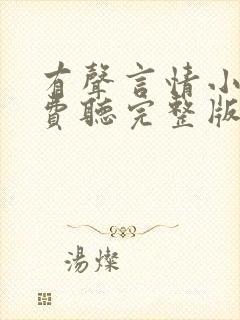 有聲言情小
費聽完整版
湯燦